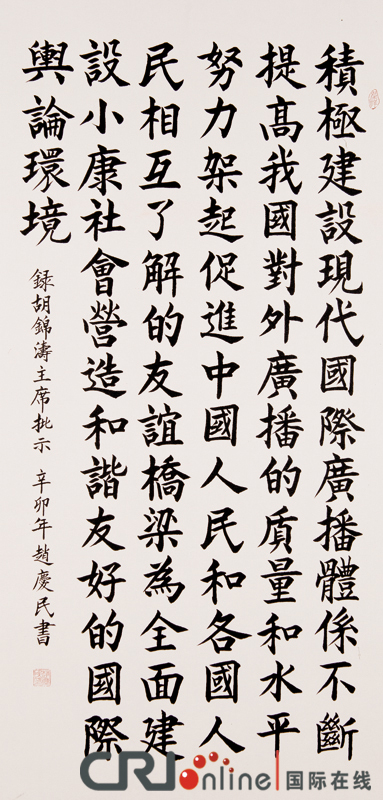 積極建設現代國際廣播體係不斷
提高我國對外廣播的質量和水平
努力架起促進中國人民和各國人
民相互了解的友誼橋梁為全面建
設小康社會營造和諧友好的國際
輿論環境
録胡錦濤主席批示 辛卯年趙慶民書
CRI online 国际在线